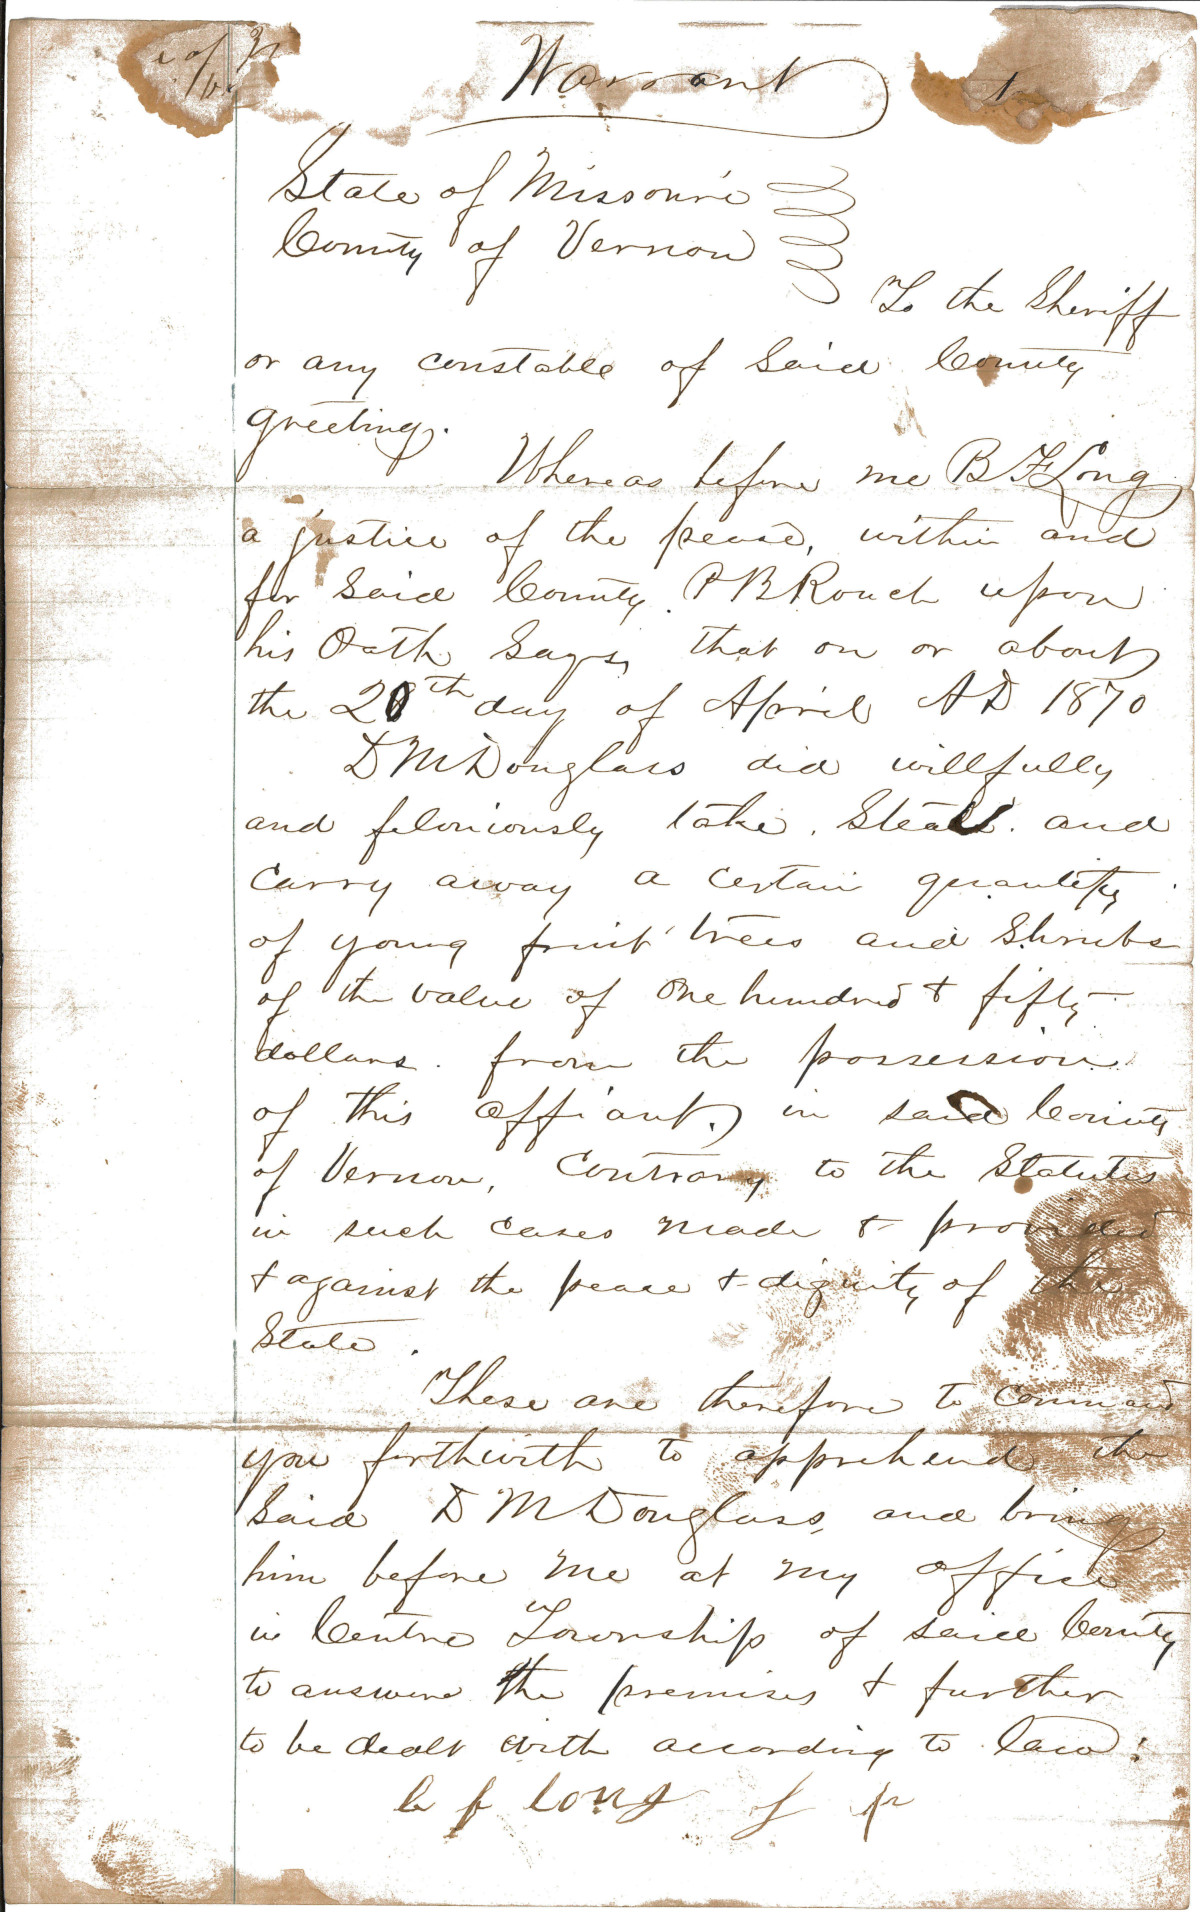 Warrant
State of Missouri
County of Vernon
To the Sheriff
or any constable of Said County
greeting.
Whereas before me B F Long
a justice of the peace, within and
for Said County P B Rouch upon
his Oath Says, that on or about
the 20th day of April AD 1870
D M Douglass did willfully
and feloniously take. Steal. and
carry away a certain quantity
of young fruit trees and Shrubs
of the value of One hundred & fifty
dollars. from the possession
of this affiant, in said County
of Vernon, contrary to the Statutes
in such cases made & provided
& against the peace & dignity of the
State.
These are therefore to command
you forthwith to apprehend the
Said D M Douglass, and bring
him before me at my office
in Centre Township of said County
to answere the premises & further
to be dealt with according to law:
b f long J P